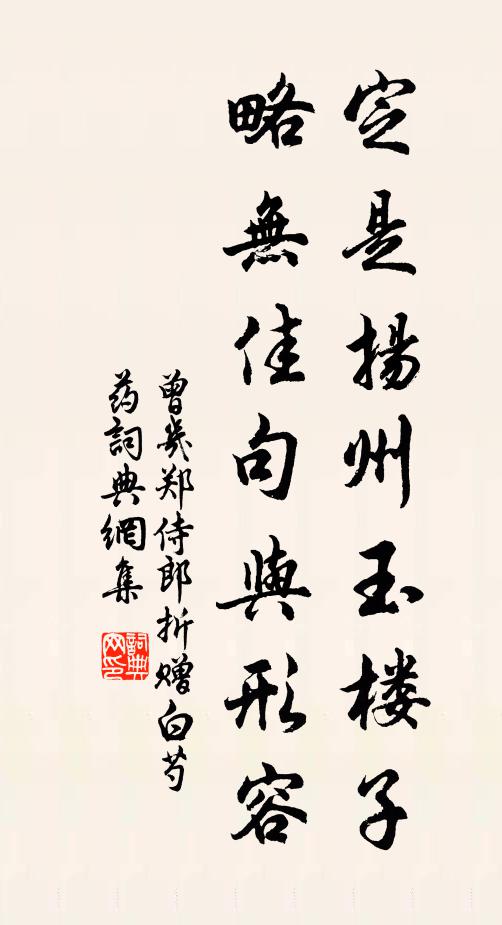 定是揚州玉楼子
略無佳句與形容
曾幾郑侍郎折赠白芍
药詞典網集
詞典網印